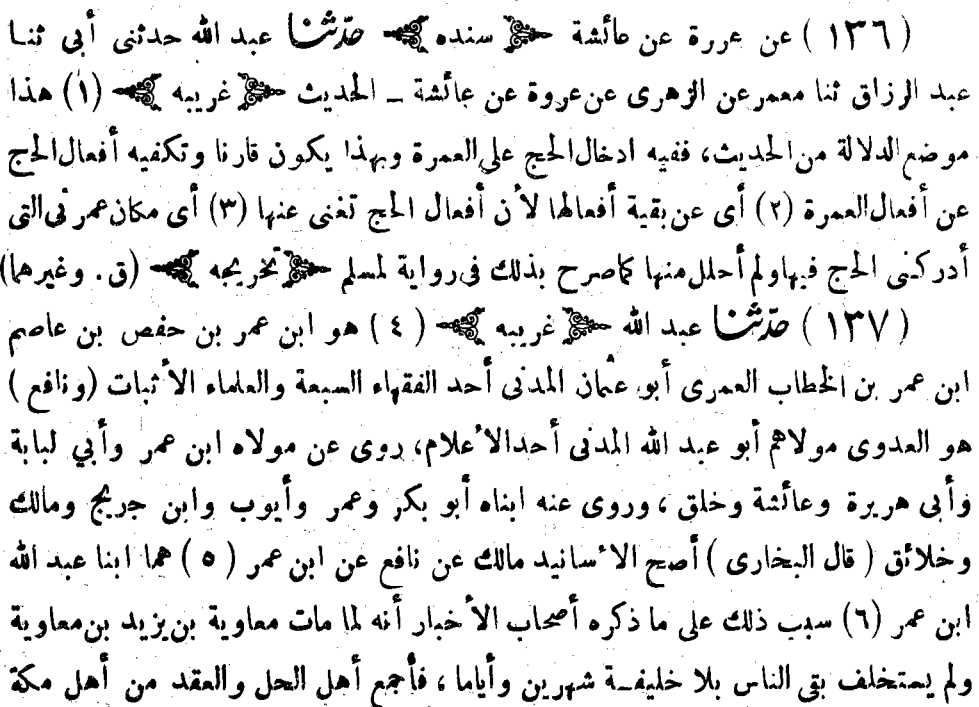 ( ١٣٦ ) عن عررة عن عائشة ﴿ سنده ﴾ حدّثنا عبد الله حدثنى أبى ثنا
عبد الرزاق ثنا معمر عن الزهرى عن عروة عن عائشة ـ الحديث ﴿ غريبه ﴾ (١) هذا
موضع الدلالة من الحديث، ففيه ادخال الحج على العمرة وبهذا يكون قارنا وتكفيه أفعال الحج
عن أفعال العمرة (٢) أى عن بقية أفعالها لأن أفعال الحج تغنى عنها (٣) أى مكان عمرتى التى
أدركنى الحج فيها ولم أحلل منها كما صرح بذلك فى رواية لمسلم ﴿ تخريجه ﴾ (ق . وغيرهما)
( ١٣٧ ) حدّثنا عبد الله ﴿ غريبه ﴾ ( ٤ ) هو ابن عمر بن حفص بن عاصم
ابن عمر بن الخطاب العمرى أبو عثمان المدنى أحد الفقهاء السبعة والعلماء الأثبات (ونافع )
هو العدوى مولاهم أبو عبد الله المدنى أحد الأعلام، روى عن مولاه ابن عمر وأبي لبابة
وأبى هريرة وعائشة وخلق ، وروى عنه ابناه أبو بكر وعمر وأيوب وابن جريج ومالك
وخلائق ( قال البخارى ) أصح الأسانيد مالك عن نافع عن ابن عمر ( ٥ ) هما ابنا عبد الله
ابن عمر (٦) سبب ذلك على ما ذكره أصحاب الأخبار أنه لما مات معاوية بن يزيد بن معاوية
ولم يستخلف بقى الناس بلا خليفـة شهرين وأياما ، فأجمع أهل الحل والعقد من أهل مكة